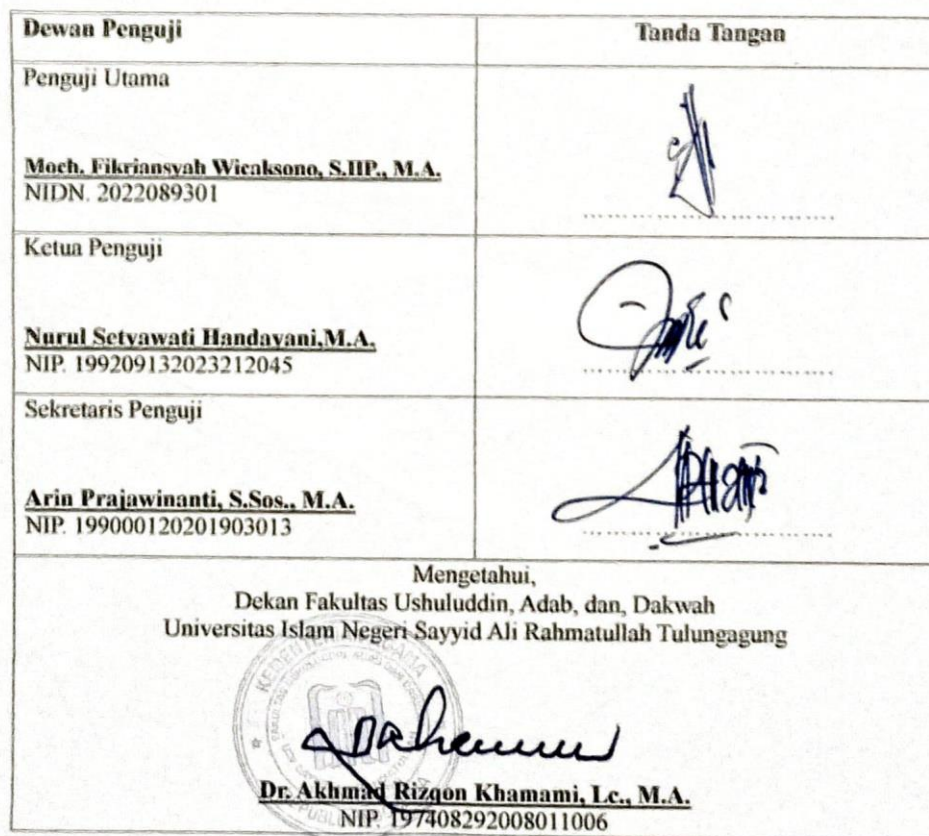 Dewan Penguji
Tanda Tangan
Penguji Utama
Moch. Fikriansyah Wicaksono, S.IIP., M.A.
NIDN. 2022089301
Ketua Penguji
Nurul Setyawati Handayani,M.A.
NIP. 199209132023212045
Sekretaris Penguji
Arin Prajawinanti, S.Sos., M.A.
NIP. 199000120201903013
Mengetahui,
Dekan Fakultas Ushuluddin, Adab, dan, Dakwah
Universitas Islam Negeri Sayyid Ali Rahmatullah Tulungagung
Dr. Akhmad Rizqon Khamami, Lc., M.A.
NIP. 197408292008011006